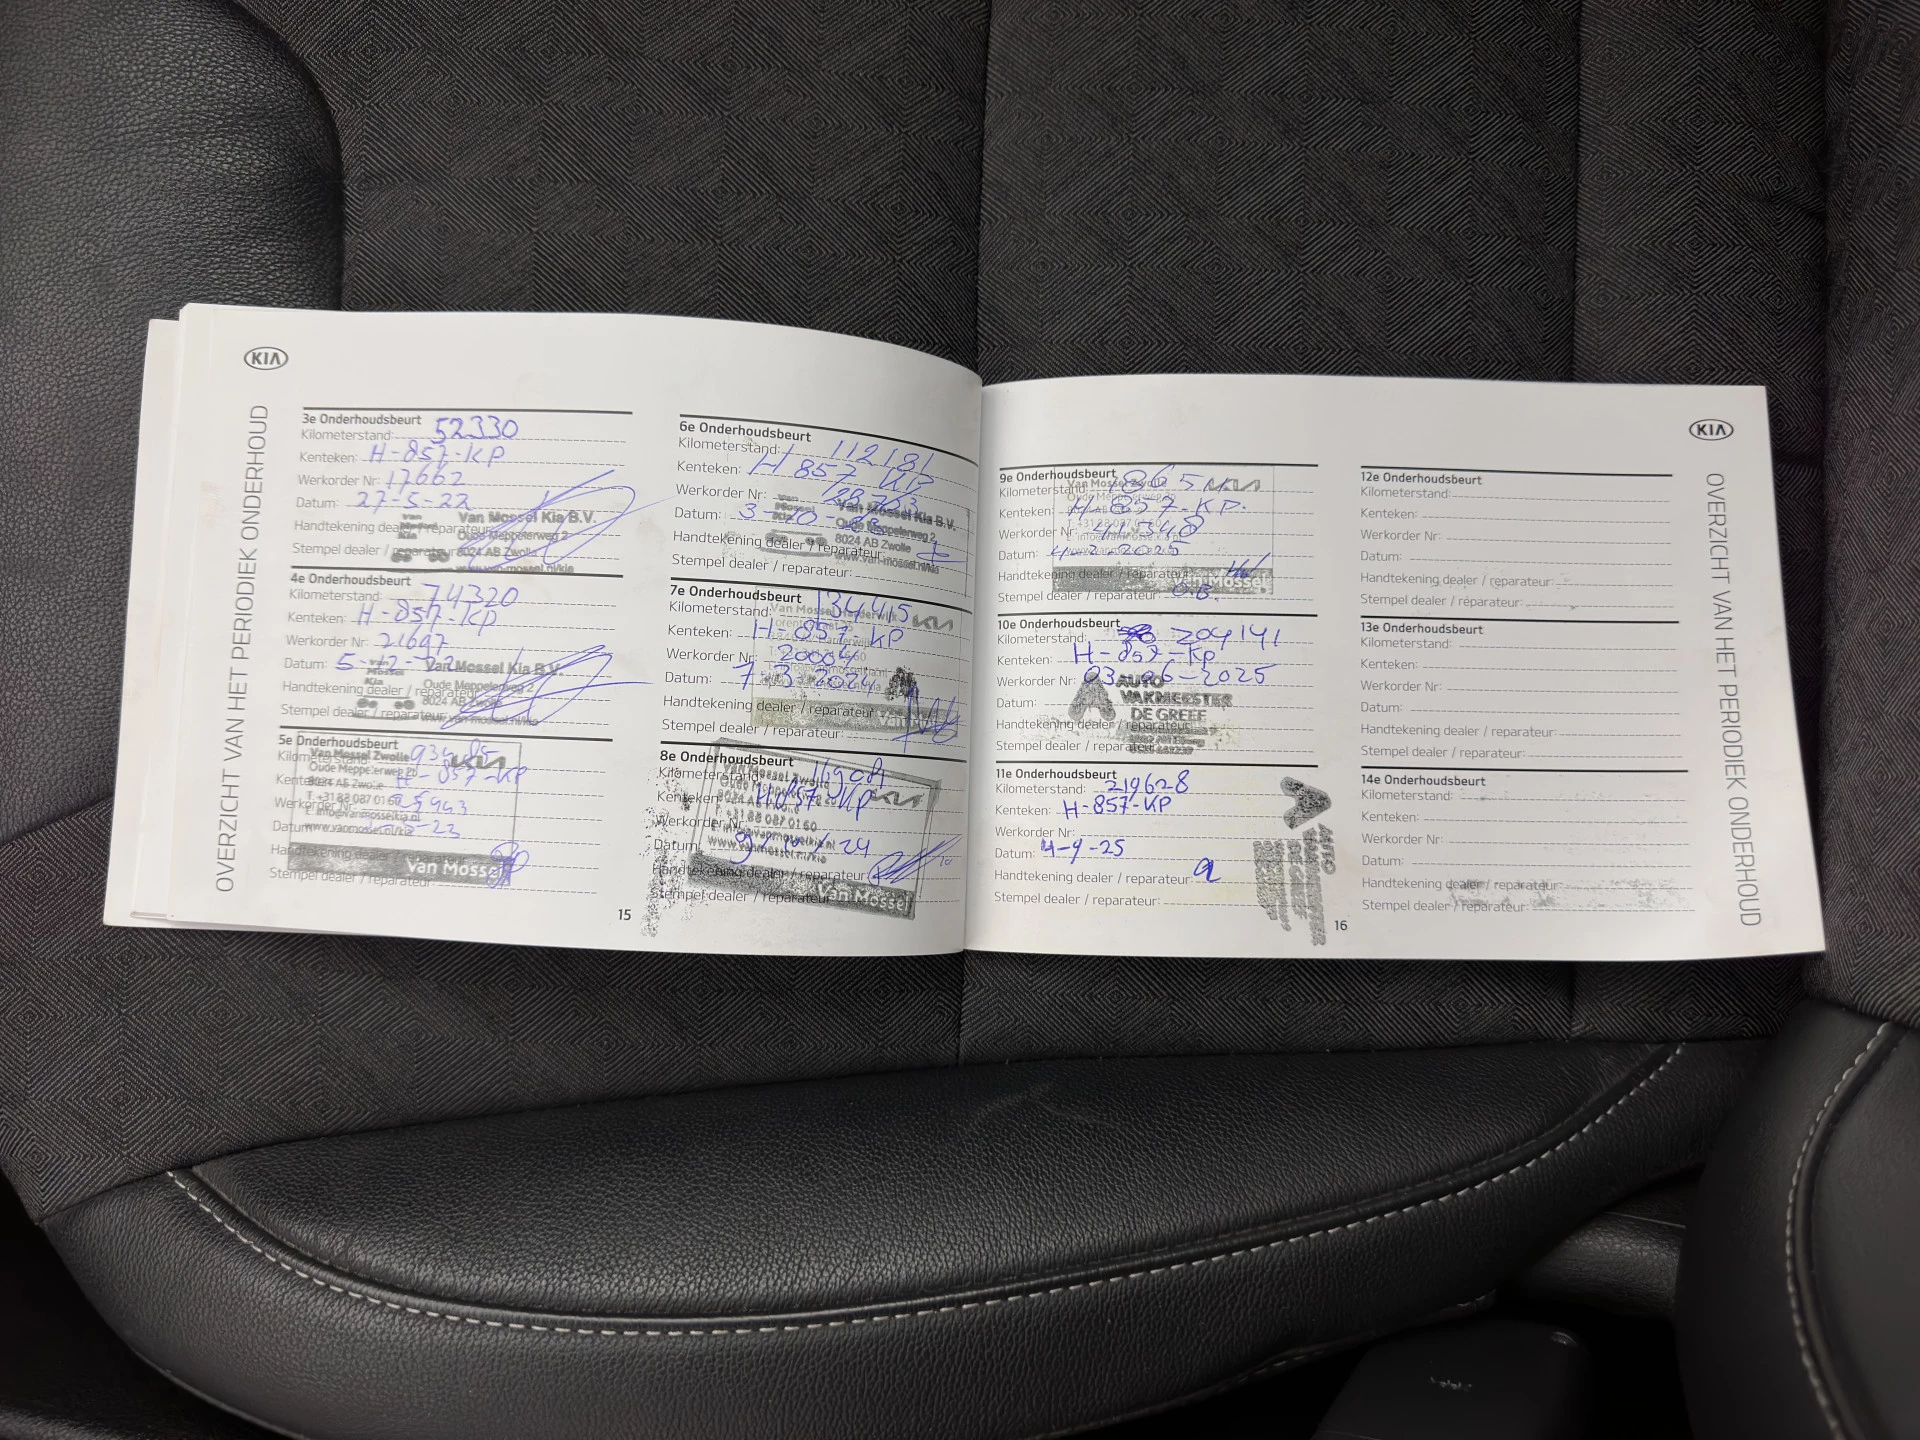 KIA
OVERZICHT VAN HET PERIODIEK ONDERHOUD
3e Onderhoudsbeurt
Kilometerstand: 52330
Kenteken: H-857-KP
Werkorder Nr: 17662
Datum: 27-5-22
Handtekening dealer / reparateur:
Stempel dealer / reparateur:
Van Mossel Kia B.V.
Oude Meppelerweg 2
8024 AB Zwolle
www.van-mossel.nl/kia
4e Onderhoudsbeurt
Kilometerstand: 74320
Kenteken: H-857-KP
Werkorder Nr: 21697
Datum: 5-12-22
Handtekening dealer / reparateur:
Stempel dealer / reparateur:
Van Mossel Kia B.V.
Oude Meppelerweg 2
8024 AB Zwolle
www.van-mossel.nl/kia
5e Onderhoudsbeurt
Kilometerstand:
Kenteken: H-857-KP
Werkorder Nr: 25943
Datum:
Handtekening dealer / reparateur:
Stempel dealer / reparateur:
Van Mossel Zwolle
Oude Meppelerweg 2b
8024 AB Zwolle
T. +31 88 087 01 60
E. info@vanmosselkia.nl
www.vanmossel.nl/kia
KIA
Van Mossel
15
6e Onderhoudsbeurt
Kilometerstand: 112181
Kenteken: H 857 KP
Werkorder Nr:
Datum: 3-10-
Handtekening dealer / reparateur:
Stempel dealer / reparateur:
Van Mossel Kia B.V.
Oude Meppelerweg 2
8024 AB Zwolle
www.van-mossel.nl/kia
7e Onderhoudsbeurt
Kilometerstand: 134415
Kenteken: H-857-KP
Werkorder Nr: 20084
Datum: 7-3-2024
Handtekening dealer / reparateur:
Stempel dealer / reparateur:
Van Mossel Harderwijk
KIA
Van Mossel
8e Onderhoudsbeurt
Kilometerstand:
Kenteken: H-857-KP
Werkorder Nr:
Datum: 9/10/24
Handtekening dealer / reparateur:
Stempel dealer / reparateur:
Van Mossel Zwolle
Oude Meppelerweg 2b
8024 AB Zwolle
T. +31 88 087 01 60
E. info@vanmosselkia.nl
www.vanmossel.nl/kia
KIA
Van Mossel
KIA
OVERZICHT VAN HET PERIODIEK ONDERHOUD
9e Onderhoudsbeurt
Kilometerstand:
Kenteken: H-857-KP.
Werkorder Nr: 41348
Datum:
Handtekening dealer / reparateur:
Stempel dealer / reparateur:
Van Mossel Zwolle
Oude Meppelerweg 2b
KIA
Van Mossel
10e Onderhoudsbeurt
Kilometerstand: 204141
Kenteken: H-857-KP
Werkorder Nr: 03-06-2025
Datum:
Handtekening dealer / reparateur:
Stempel dealer / reparateur:
AUTO
VAKMEESTER
DE GREEF
11e Onderhoudsbeurt
Kilometerstand: 219628
Kenteken: H-857-KP
Werkorder Nr:
Datum: 4-9-25
Handtekening dealer / reparateur:
Stempel dealer / reparateur:
AUTO
VAKMEESTER
DE GREEF
16
12e Onderhoudsbeurt
Kilometerstand:
Kenteken:
Werkorder Nr:
Datum:
Handtekening dealer / reparateur:
Stempel dealer / réparateur:
13e Onderhoudsbeurt
Kilometerstand:
Kenteken:
Werkorder Nr:
Datum:
Handtekening dealer / reparateur:
Stempel dealer / reparateur:
14e Onderhoudsbeurt
Kilometerstand:
Kenteken:
Werkorder Nr:
Datum:
Handtekening dealer / reparateur:
Stempel dealer / reparateur: